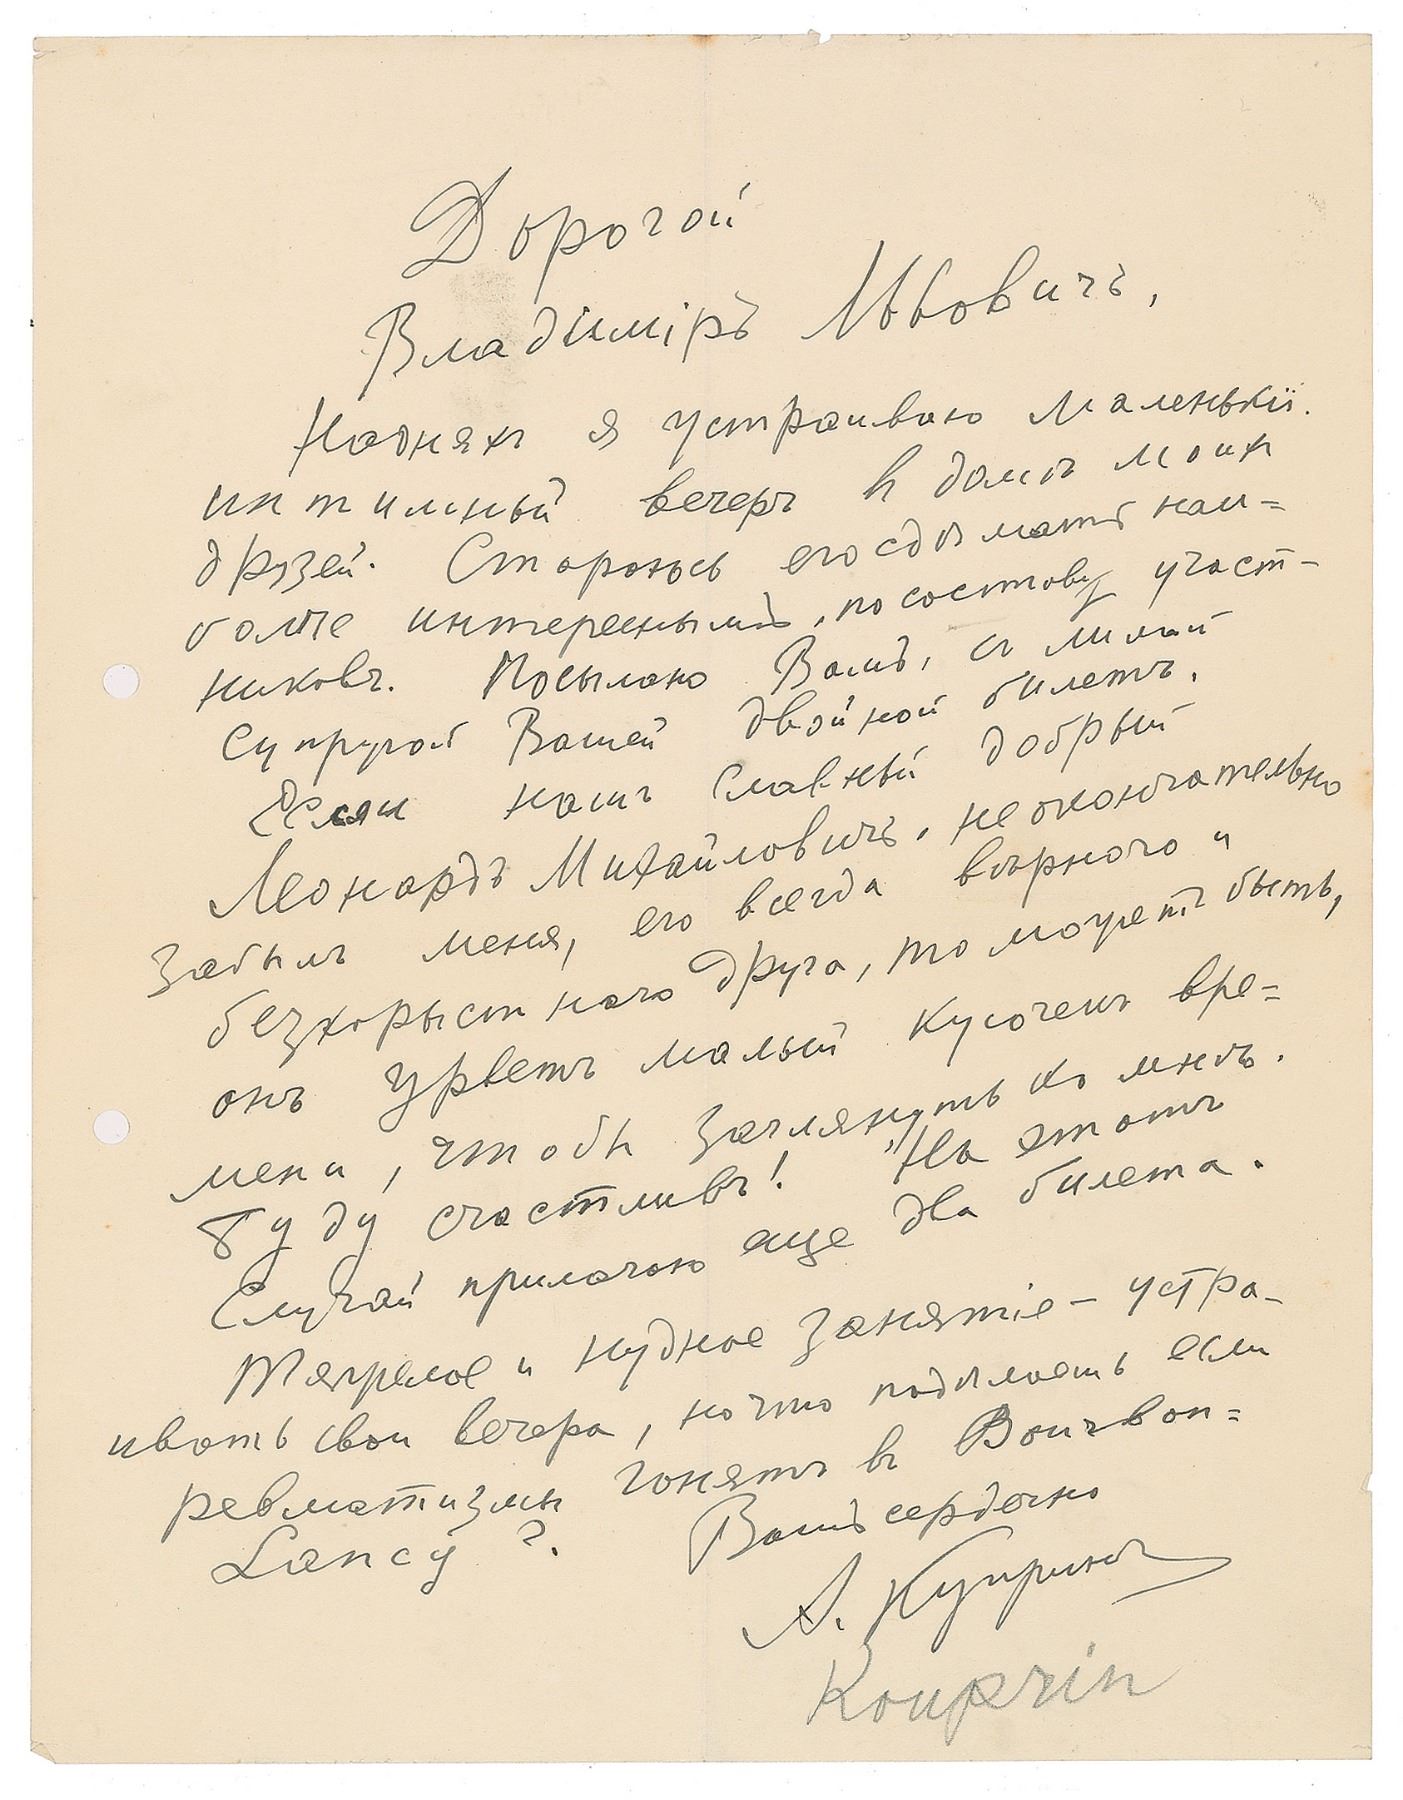 Дорогой
Владимiръ Львовичъ,
Надняхъ я устраиваю маленькiй
интимный вечеръ въ домѣ моихъ
друзей. Стараюсь его сдѣлать наи=
болѣе интереснымъ, по составу участ-
никовъ. Посылаю Вамъ, съ милой
супругой Вашей двойной билетъ.
Если нашъ славный добрый
Леонардъ Михайловичъ, не окончательно
забылъ меня, его всегда вѣрного и
безкорыстнаго друга, то можетъ быть,
онъ урветъ малый кусочекъ вре=
мени, чтобы заглянуть ко мнѣ.
Буду счастливъ! На этотъ
случай прилагаю еще два билета.
Тяжелое и нудное занятiе – устра-
ивать свои вечера, но что подѣлаешь если
ревматизмы гонятъ въ
Lancy?
Вашъ сердечно
А. Купринъ
Kouprin